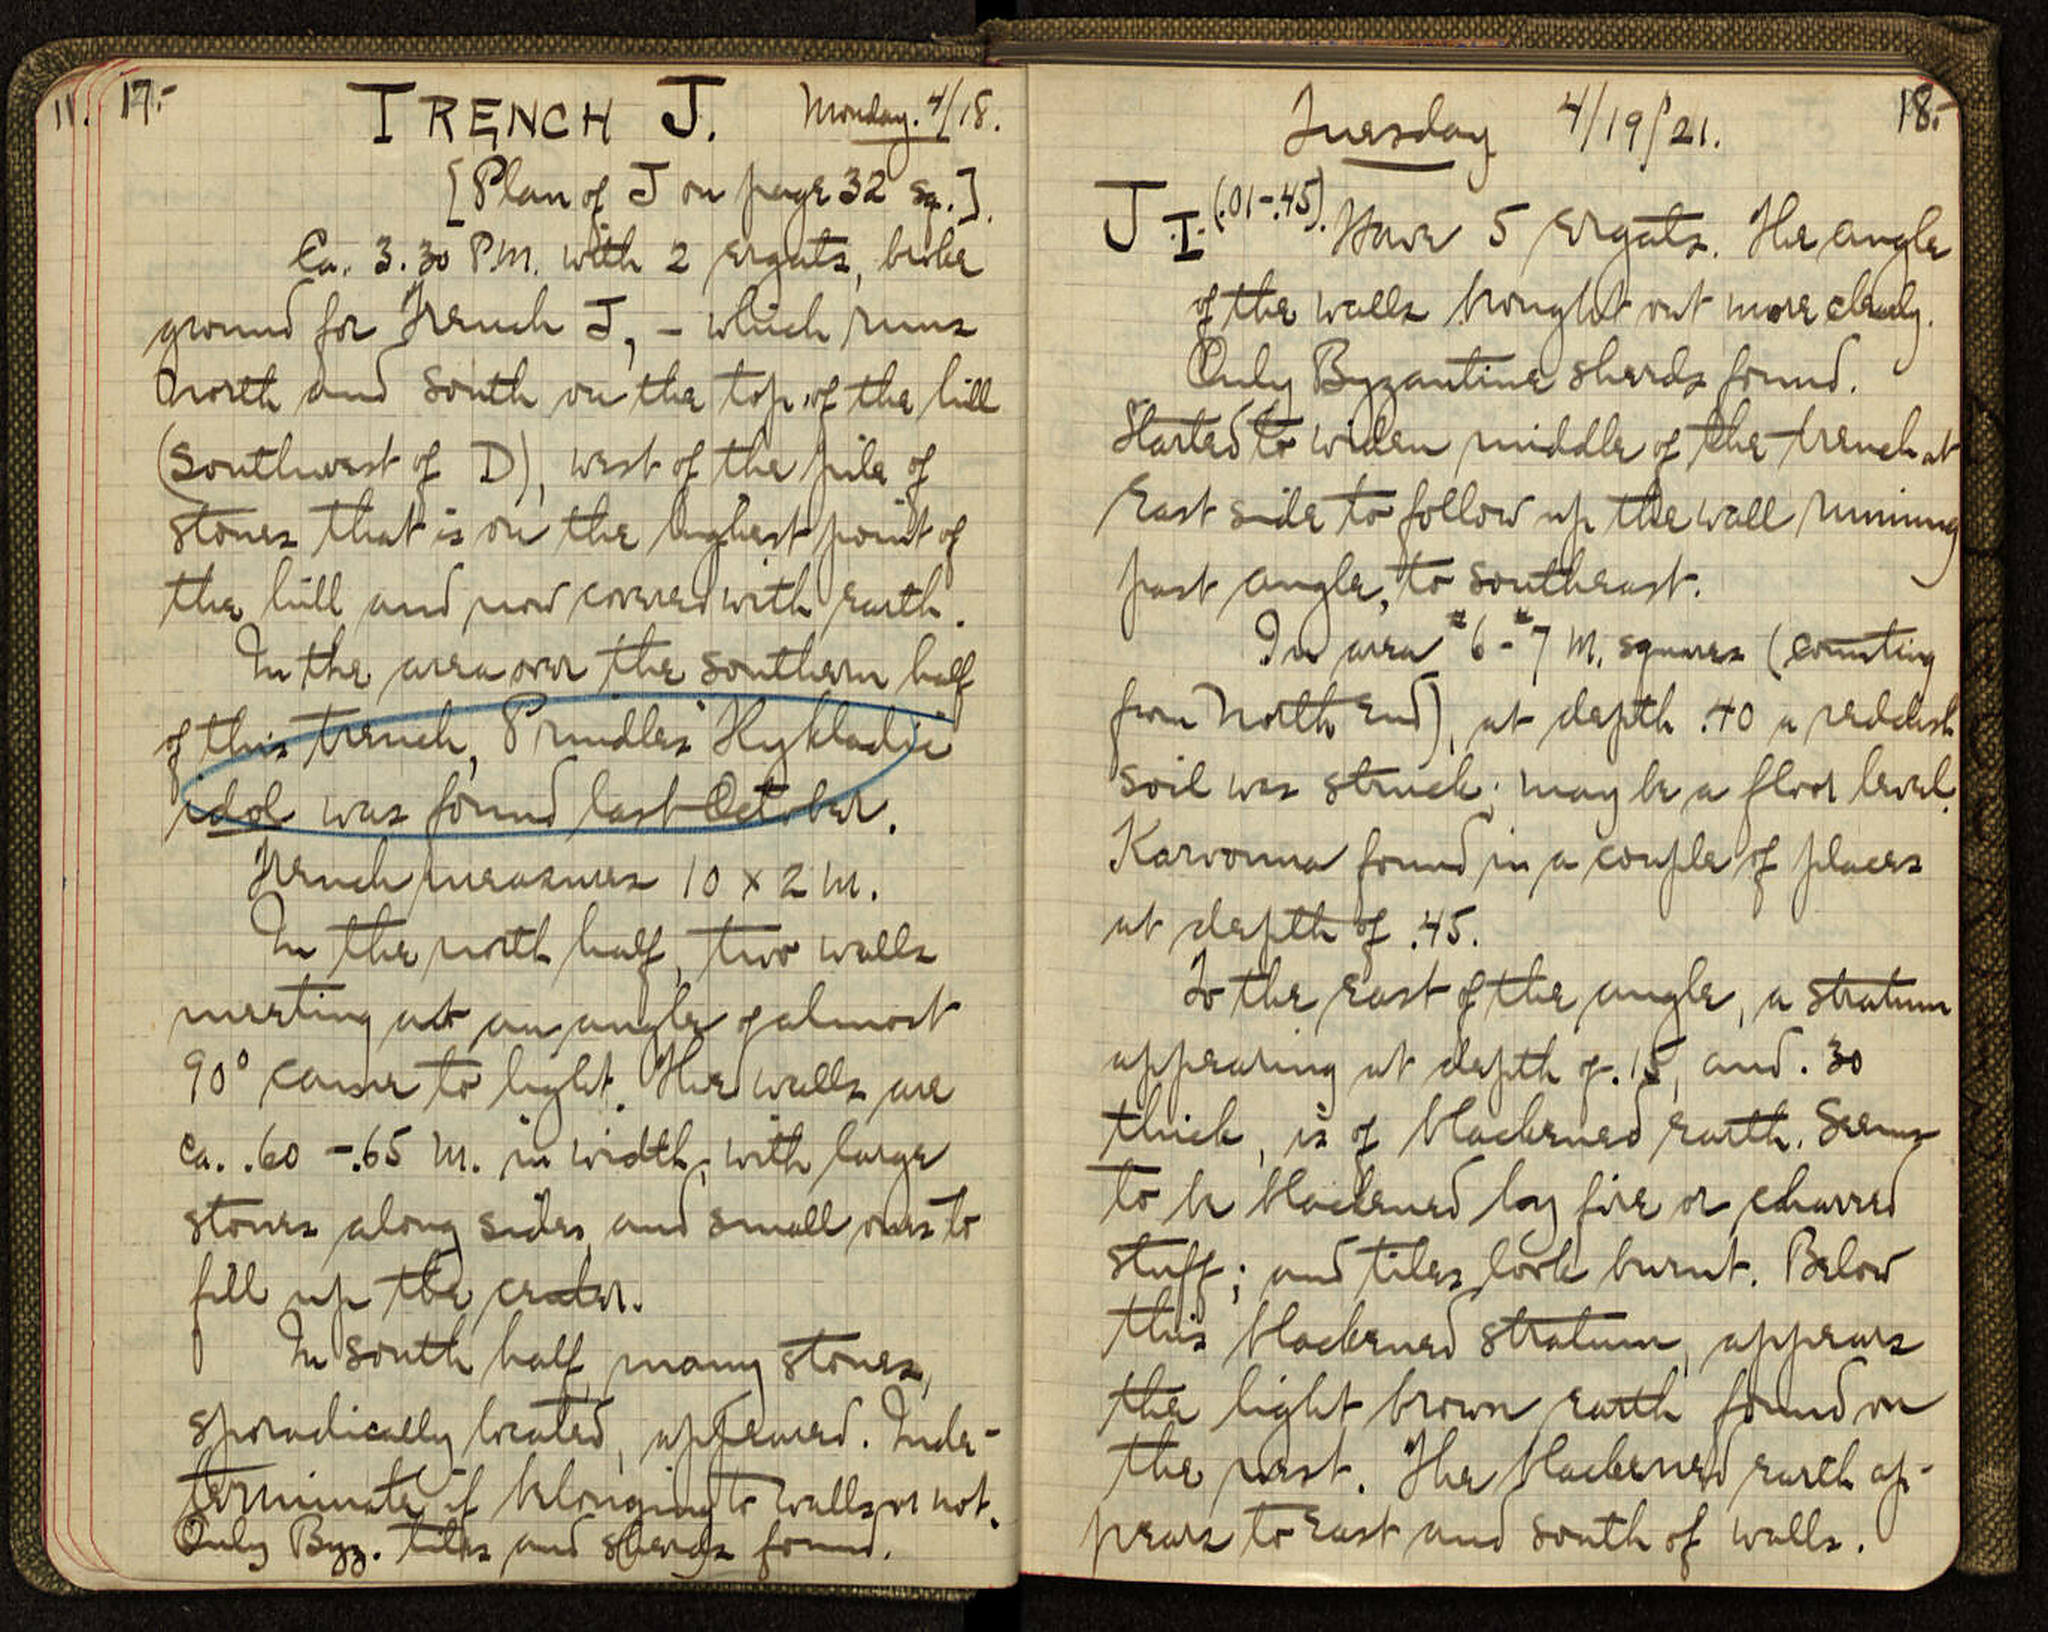 11. 17.-
TRENCH J. Monday. 4/18.
[Plan of J on page 32 sq.].
Ca. 3.30 P.M. with 2 ergats, broke
ground for Trench J, - which runs
North and South on the top of the hill
(Southwest of D), west of the pile of
stones that is on the highest point of
the hill and now covered with earth.
In the area over the southern half
of this trench, Prindle's Kykladic
idol was found last October.
Trench measures 10 x 2 m.
In the north half, two walls
meeting at an angle of almost
90° came to light. The walls are
ca. .60 - .65 m. in width, with large
stones along sides, and small ones to
fill up the center.
In south half, many stones,
sporadically located, appeared. Inde-
terminate if belonging to walls or not.
Only Byz. tiles and sherds found.
Tuesday 4/19/21. 18.-
J I. (.01-.45). Have 5 ergats. The angle
of the walls brought out more clearly.
Only Byzantine sherds found.
Started to widen middle of the trench at
East side to follow up the wall running
past angle, to southeast.
In area #6-#7 m. squares (counting
from North End), at depth .40 a reddish
soil was struck; may be a floor level.
Karvouna found in a couple of places
at depth of .45.
To the east of the angle, a stratum
appearing at depth of .15, and .30
thick, is of blackened earth. Seems
to be blackened by fire or charred
stuff; and tiles look burnt. Below
this blackened stratum, appears
the light brown earth found on
the west. The blackened earth ap-
pears to East and South of walls.